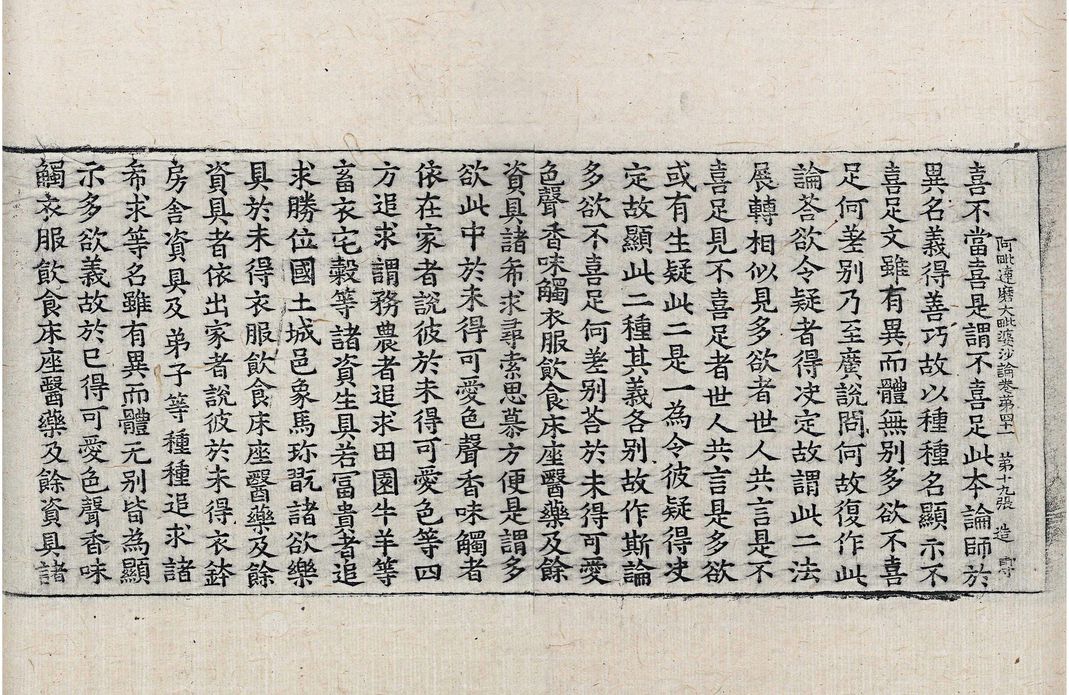 阿毗達磨大毗婆沙論卷第四十一　第十九張　造
喜不當喜是謂不喜足此本論師於
異名義得善巧故以種種名顯示不
喜足文雖有異而體無別多欲不喜
足何差別乃至廣說問何故復作此
論荅欲令疑者得决定故謂此二法
展轉相似見多欲者世人共言是不
喜足見不喜足者世人共言是多欲
或有生疑此二是一為令彼疑得决
定故顯此二種其義各別故作斯論
多欲不喜足何差別荅於未得可愛
色聲香味觸衣服飲食床座醫藥及餘
資具諸希求尋索思慕方便是謂多
欲此中於未得可愛色聲香味觸者
依在家者說彼於未得可愛色等四
方追求謂務農者追求田園牛羊等
畜衣宅穀等諸資生具若富貴者追
求勝位國土城邑象馬珎翫諸欲樂
具於未得衣服飲食床座醫藥及餘
資具者依出家者說彼於未得衣鉢
房舍資具及弟子等種種追求諸
希求等名雖有異而體无別皆為顯
示多欲義故於已得可愛色聲香味
觸衣服飲食床座醫藥及餘資具諸